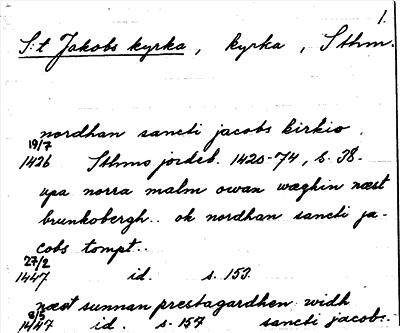 1.
S:t Jakobs kyrka, kyrka, Sthm.
nordhan sancti jacobs kirkio.
19/7
1426 Sthms jordeb. 1420-74, s. 38.
upa norra malm owan wæghin næst
brunkobergh.. ok nordhan sancti ja-
cobs tompt..
27/2
1447 id. s. 153.
næst sunnan prestagardhen widh
8/5
1447 id. s. 157 sancti jacobs.